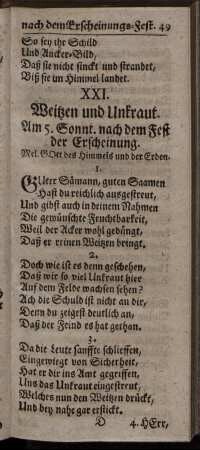 nach dem Erscheinungs-Fest. 49
So sey ihr Schild
Und Ancker-Bild,
Daß sie nicht sinckt und strandet,
Biß sie im Himmel landet.
XXI.
Weitzen und Unkraut.
Am 5. Sonnt. nach dem Fest
der Erscheinung.
Mel. GOtt des Himmels und der Erden.
1.
GUter Sämann, guten Saamen
Hast du reichlich ausgestreut,
Und gibst auch in deinem Nahmen
Die gewünschte Fruchtbarkeit,
Weil der Acker wohl gedüngt,
Daß er reinen Weitzen bringt.
2.
Doch wie ist es denn geschehen,
Daß wir so viel Unkraut hier
Auf dem Felde wachsen sehen?
Ach die Schuld ist nicht an dir,
Denn du zeigest deutlich an,
Daß der Feind es hat gethan.
3.
Da die Leute sanffte schlieffen,
Eingewiegt von Sicherheit,
Hat er dir ins Amt gegriffen,
Uns das Unkraut eingestreut,
Welches nun den Weitzen drückt,
Und bey nahe gar erstickt.
D 4. HErr,